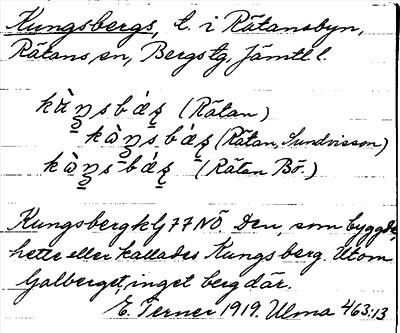 Kungsbergs, l. i Rätansbyn,
Rätans sn, Bergs tg, Jämtl l.
(Rätan)
(Rätan, Sundvisson)
(Rätan Bö.)
Kungsberg klf 77 NÖ. Den, som byggde,
hette eller kallades Kungsberg. Utom
Galberget, inget berg där.
E. Terner 1919. Ulma 463:13